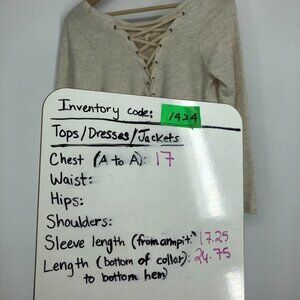 Inventory code: 1424
Tops/Dresses/Jackets
Chest (A to A): 17
Waist:
Hips:
Shoulders:
Sleeve length (from armpit): 17.25
Length (bottom of collar): 24.75
to bottom hem)